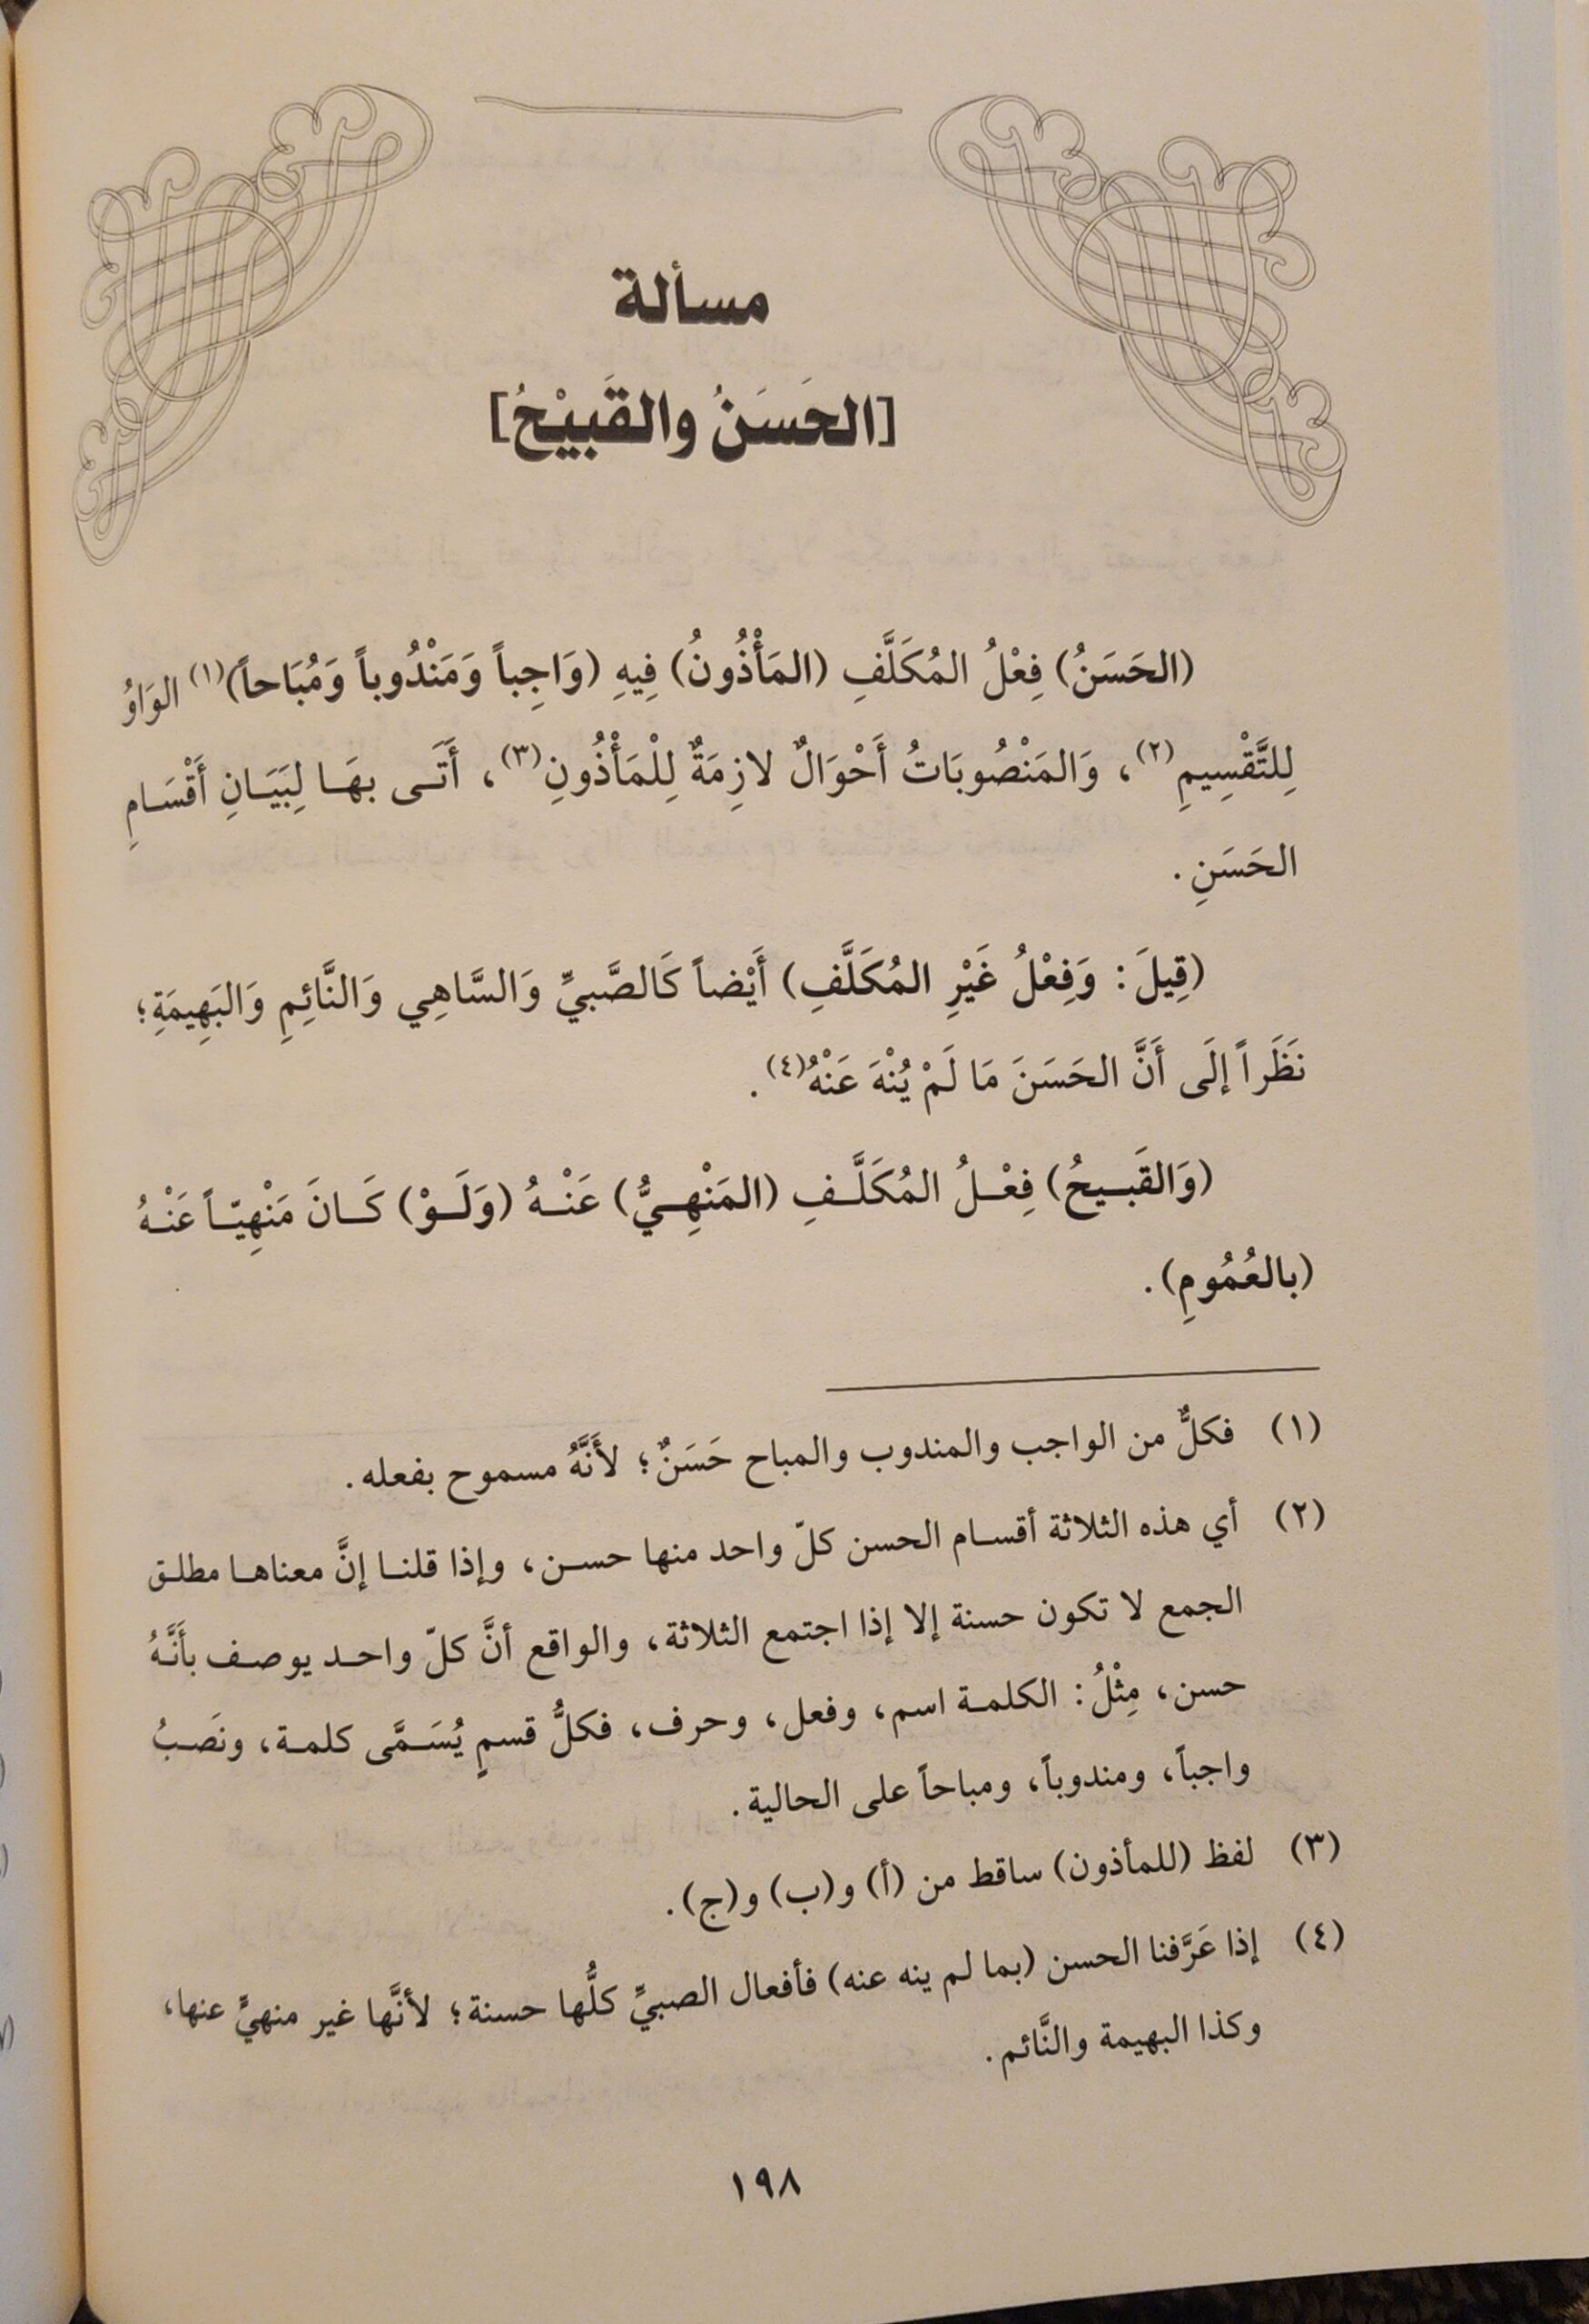 مسألة
[الحَسَنُ والقَبِيْحُ]
(الحَسَنُ) فِعْلُ المُكَلَّفِ (المَأْذُونُ) فِيهِ (وَاجِباً وَمَنْدُوباً وَمُبَاحاً)(١) الوَاوُ
لِلتَّقْسِيمِ(٢)، وَالمَنْصُوبَاتُ أَحْوَالٌ لازِمَةٌ لِلْمَأْذُونِ(٣)، أَتَى بهَا لِبَيَانِ أَقْسَامِ
الحَسَنِ.
(قِيلَ: وَفِعْلُ غَيْرِ المُكَلَّفِ) أَيْضاً كَالصَّبيِّ وَالسَّاهِي وَالنَّائِمِ وَالبَهِيمَةِ؛
نَظَراً إلَى أَنَّ الحَسَنَ مَا لَمْ يُنْهَ عَنْهُ(٤).
(وَالقَبيحُ) فِعْلُ المُكَلَّفِ (المَنْهِيُّ) عَنْهُ (وَلَوْ) كَانَ مَنْهِيّاً عَنْهُ
(بالعُمُومِ).
(١) فكلٌّ من الواجب والمندوب والمباح حَسَنٌ؛ لأَنَّهُ مسموح بفعله.
(٢) أي هذه الثلاثة أقسام الحسن كلّ واحد منها حسن، وإذا قلنا إنَّ معناها مطلق
الجمع لا تكون حسنة إلا إذا اجتمع الثلاثة، والواقع أنَّ كلّ واحد يوصف بأَنَّهُ
حسن، مِثْلُ: الكلمة اسم، وفعل، وحرف، فكلُّ قسمٍ يُسَمَّى كلمة، ونَصَبُ
واجباً، ومندوباً، ومباحاً على الحالية.
(٣) لفظ (للمأذون) ساقط من (أ) و(ب) و(ج).
(٤) إذا عَرَّفنا الحسن (بما لم ينه عنه) فأفعال الصبيِّ كلُّها حسنة؛ لأنَّها غير منهيٍّ عنها،
وكذا البهيمة والنَّائم.
١٩٨